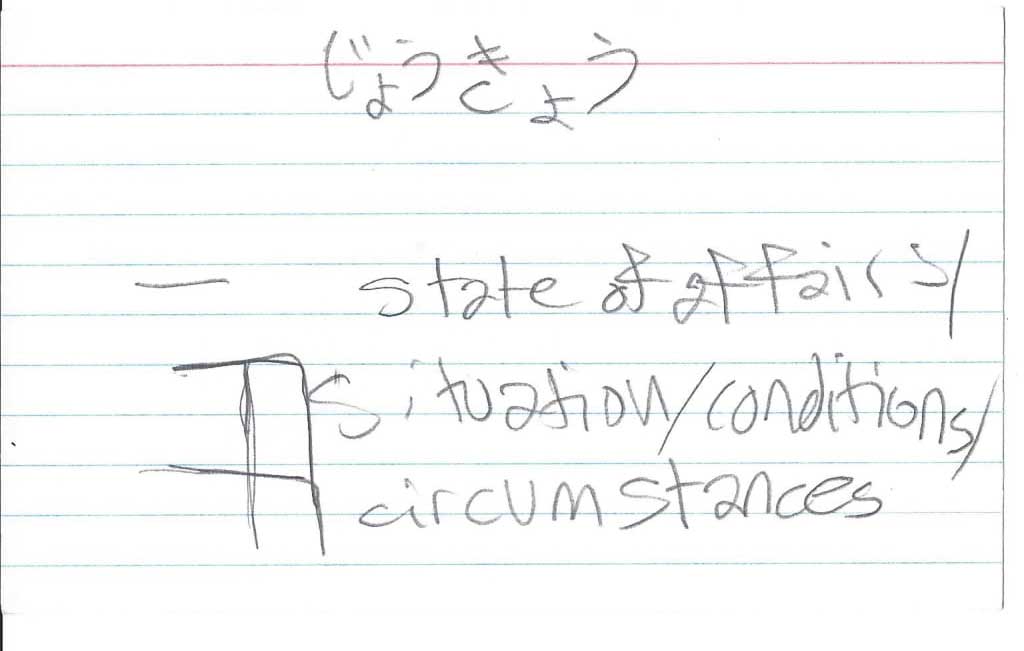 じょうきょう
state of affairs/
situation/conditions/
circumstances